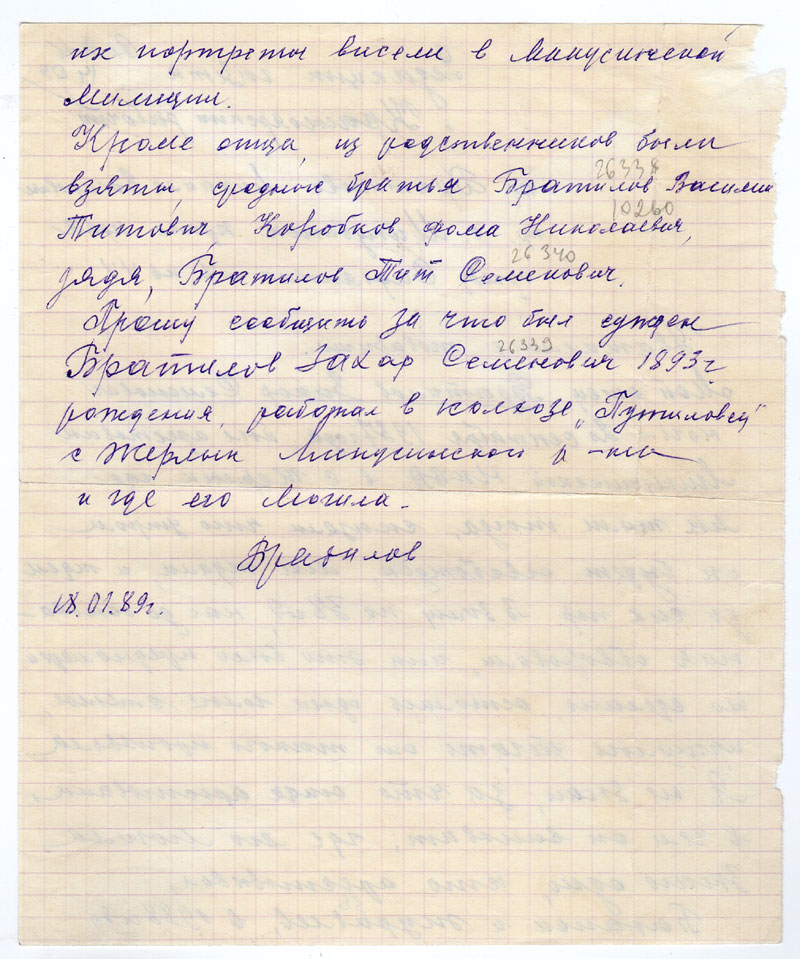 их портреты висели в Минусинской
Милиции.
Кроме отца, из родственников были
26338
взяты, сродные братья Братилов Василий
10260
Титович, Коробков Фома Николаевич,
26340
дядя, Братилов Тит Семенович,
Прошу сообщить за что был сужден
26339
Братилов Захар Семенович 1893 г
рождения, работал в колхозе „Путиловец"
с Жерлык Минусинского р-на
и где его могила.
Братилов
18.01.89г.